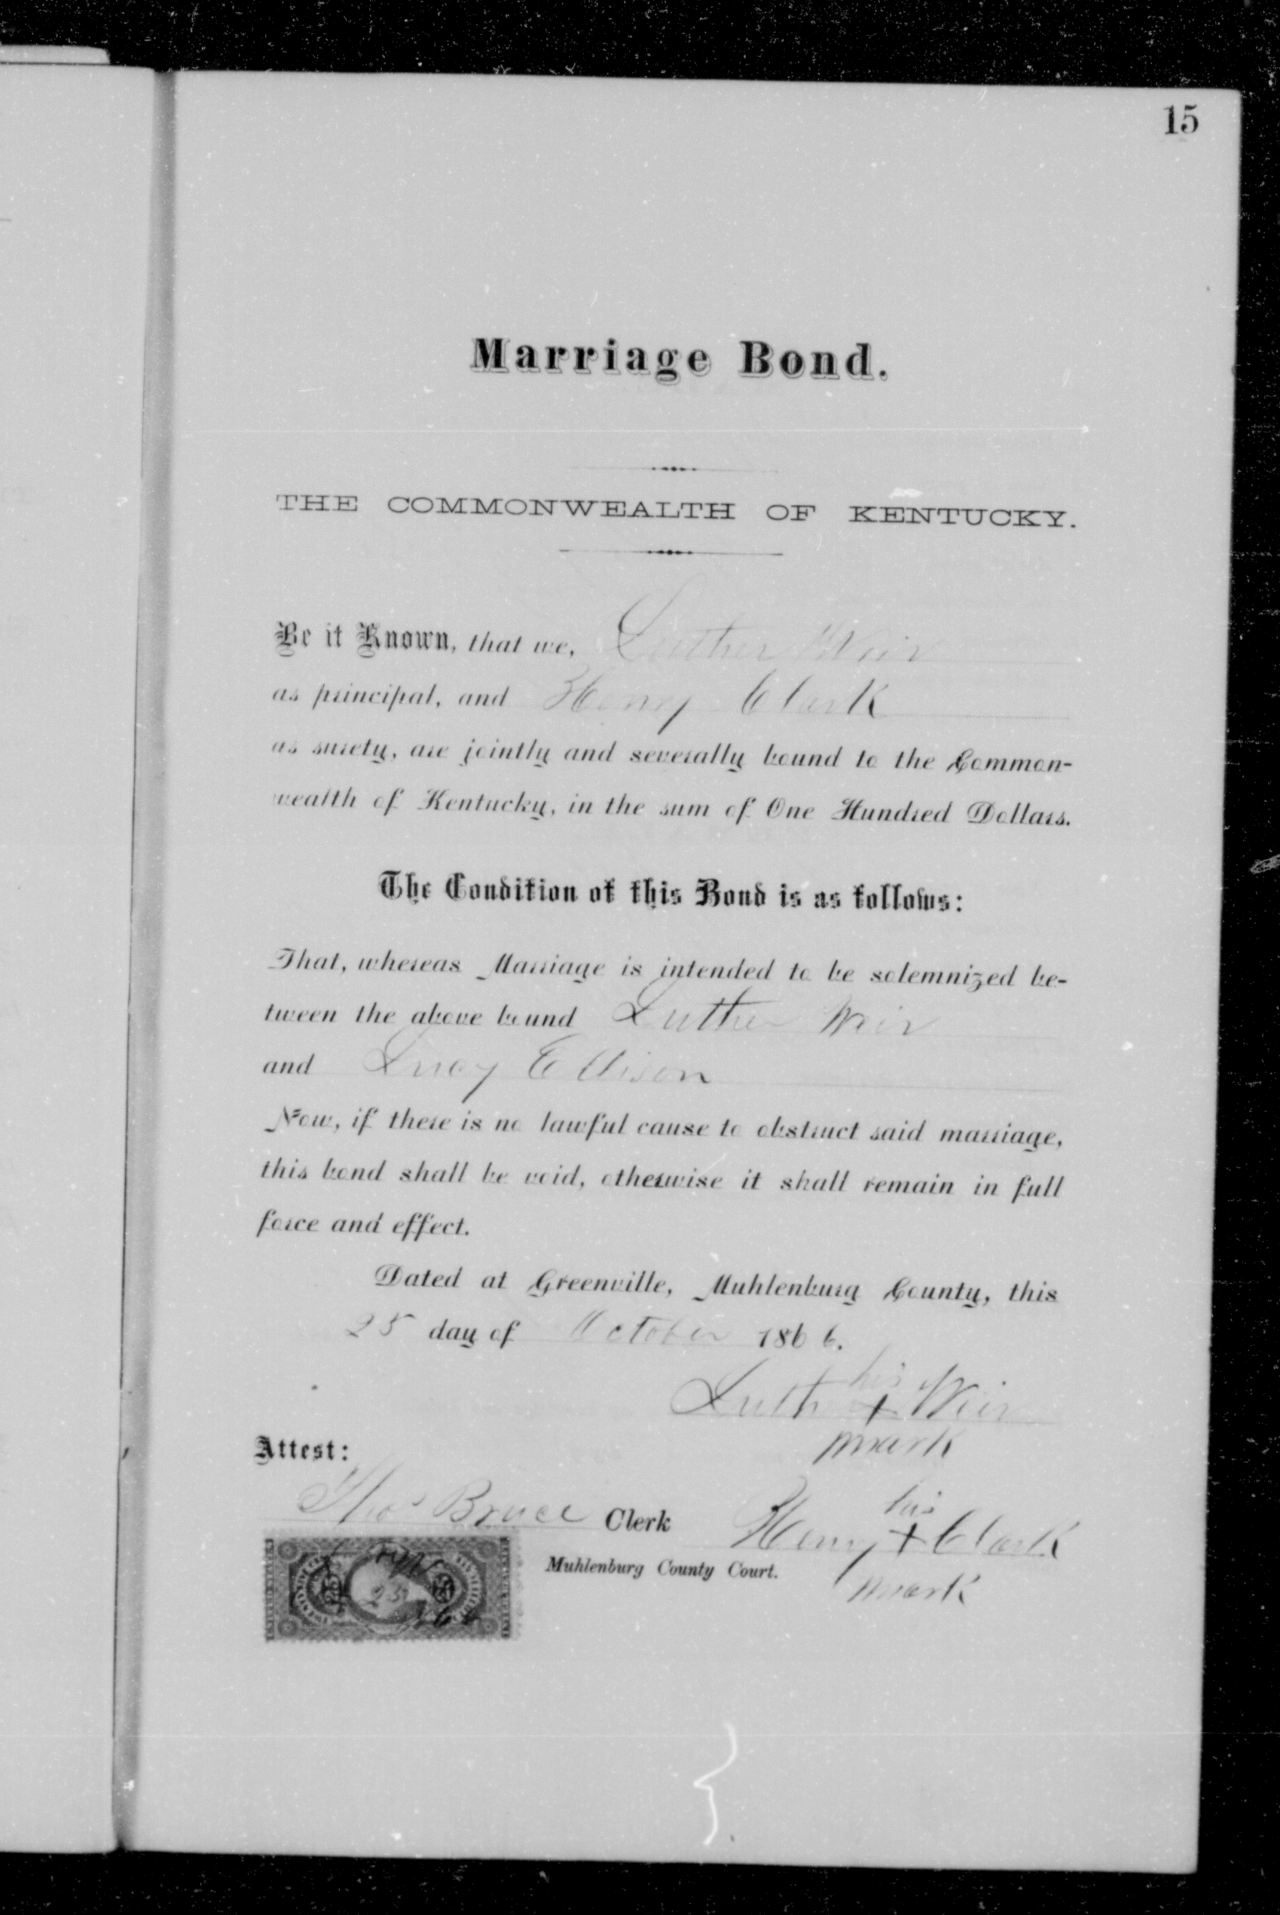 15
Marriage Bond.
THE COMMONWEALTH OF KENTUCKY.
Be it Known, that we, Luther Weir
as principal, and Henry Clark
as surety, are jointly and severally bound to the Common-
wealth of Kentucky, in the sum of One Hundred Dollars.
The Condition of this Bond is as follows:
That, whereas Marriage is intended to be solemnized be-
tween the above bound Luther Weir
and Lucy Ellison
Now, if there is no lawful cause to obstruct said marriage,
this bond shall be void, otherwise it shall remain in full
force and effect.
Dated at Greenville, Muhlenburg County, this
25 day of October 1866.
his
Luther + Weir
mark
Attest:
Thos Bruce Clerk
Muhlenburg County Court.
his
Henry + Clark
mark